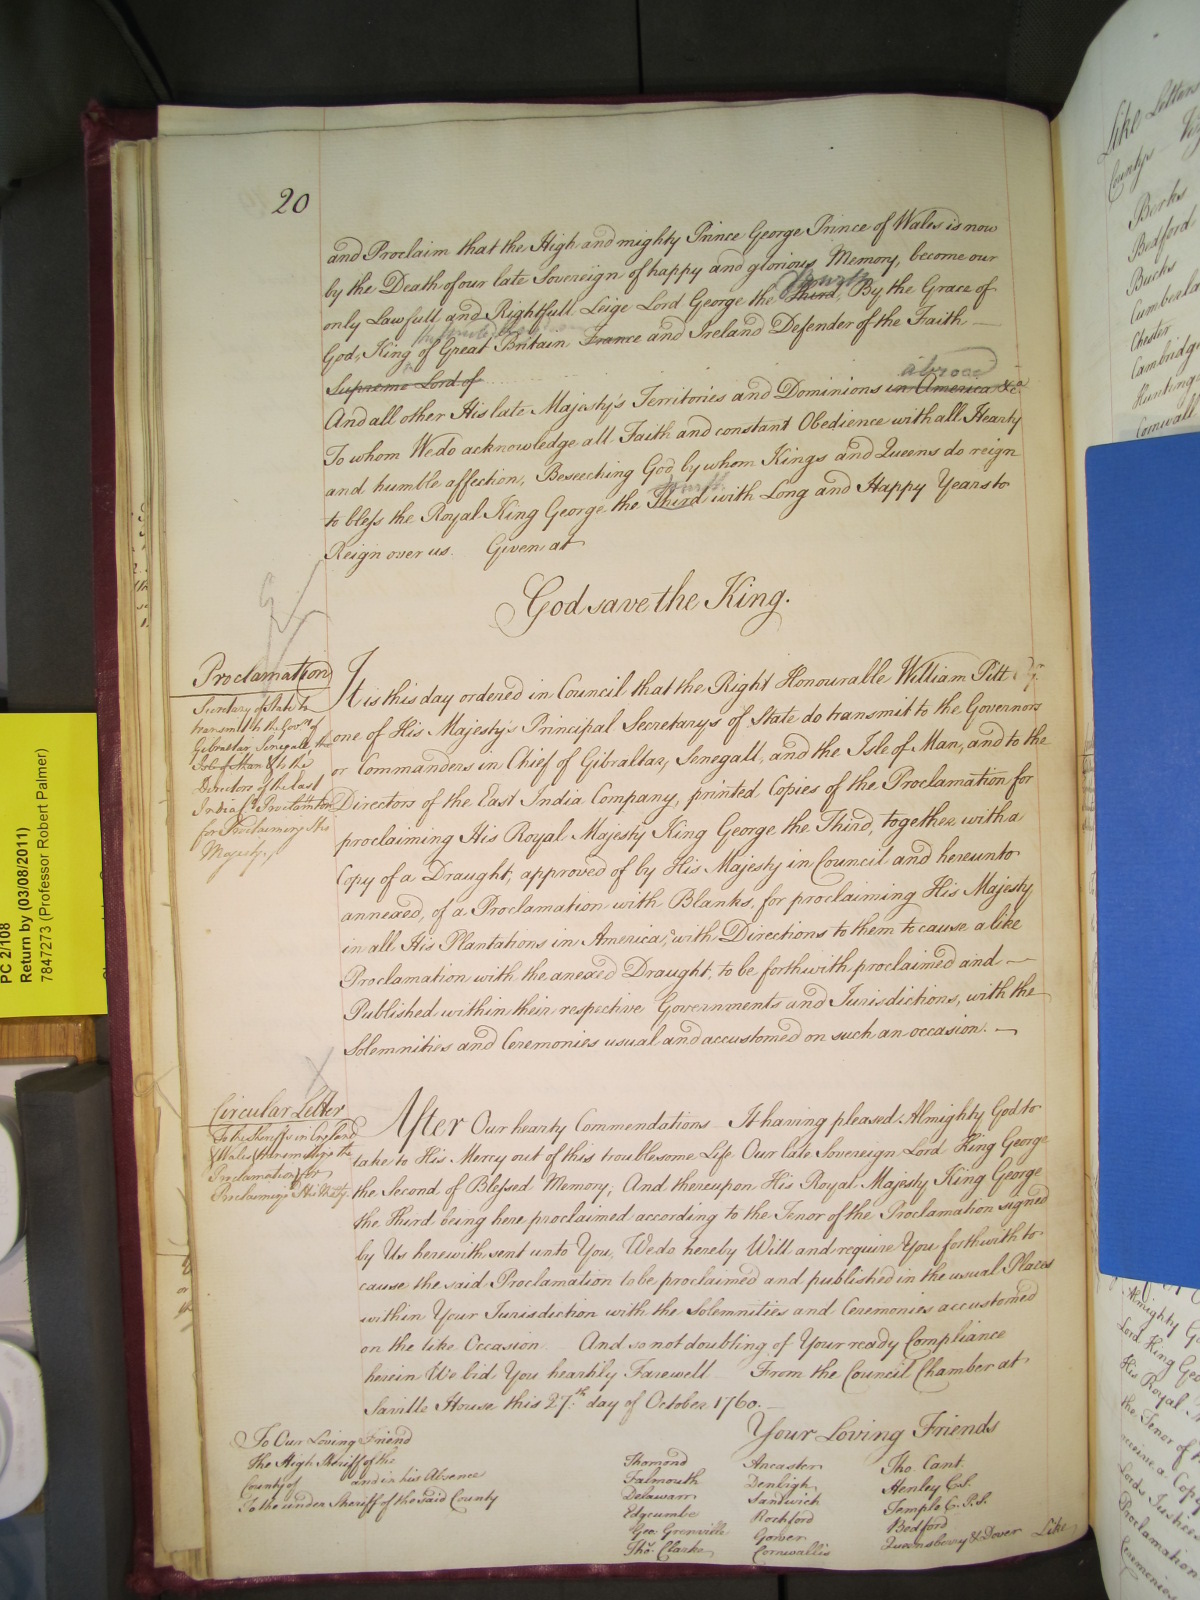 20
and Proclaim that the High and mighty Prince George Prince of Wales is now
by the Death of our late Sovereign of happy and glorious Memory, become our
fourth
only Lawfull and Rightfull Leige Lord George the Third, By the Grace of
God, King of Great Britain France and Ireland Defender of the Faith
Supreme Lord of
abroad
And all other His late Majesty's Territories and Dominions in America &ca
To whom We do acknowledge all Faith and constant Obedience with all Hearty
and humble affection, Beseeching God by whom Kings and Queens do reign
fourth
to bless the Royal King George the Third with Long and Happy Years to
Reign over us. Given at
God save the King.
Proclamation
Secretary of State to
transmit to the Govrs of
Gibraltar Senegall, the
Isle of Man & to the
Directors of the East
India Co Proclamtion
for Proclaiming His
Majesty.
It is this day ordered in Council that the Right Honourable William Pitt
one of His Majesty's Principal Secretarys of State do transmit to the Governors
or Commanders in Chief of Gibraltar, Senegall, and the Isle of Man, and to the
Directors of the East India Company, printed Copies of the Proclamation for
proclaiming His Royal Majesty King George the Third, together with a
Copy of a Draught, approved of by His Majesty in Council and hereunto
annexed, of a Proclamation with Blanks, for proclaiming His Majesty
in all His Plantations in America, with Directions to them to cause a like
Proclamation with the anexed Draught, to be forthwith proclaimed and
Published within their respective Governments and Jurisdictions, with the
Solemnities and Ceremonies usual and accustomed on such an occasion.
Circular Letter
To the Sheriffs in England
& Wales transmitting the
Proclamation for
Proclaiming His Maty.
After Our hearty Commendations It having pleased Almighty God to
take to His Mercy out of this troublesome Life Our late Sovereign Lord King George
the Second of Blessed Memory, And thereupon His Royal Majesty King George
the Third being here proclaimed according to the Tenor of the Proclamation signed
by Us herewith sent unto You, We do hereby Will and require You forthwith to
cause the said Proclamation to be proclaimed and published in the usual Places
within Your Jurisdiction with the Solemnities and Ceremonies accustomed
on the like Occasion And so not doubling of Your ready Compliance
herein We bid You heartily Farewell From the Council Chamber at
Saville House this 27.th day of October 1760.
Your Loving Friends
To Our Loving Friend
the High Sheriff of the
County of and in his Absence
To the under Sheriff of the said County
Thomond Ancaster Tho. Cant.
Falmouth Denbigh Henley C.S.
Delawarr Sandwich Temple C.P.S.
Edgcumbe Rochford Bedford
Geo: Grenville Gower Queensberry & Dover
Thos. Clarke Cornwallis
Like
Like Letters
County
Berks
Bedford
Bucks
Cumberla
Chester
Cambridg
Hunting
Cornwall
Almighty G
Lord King Ge
His Royal
the Tenor of
receive a Cop
Lords Justices
Proclamation
Ceremonies
PC 2/108
Return by (03/08/2011)
7847273 (Professor Robert Palmer)